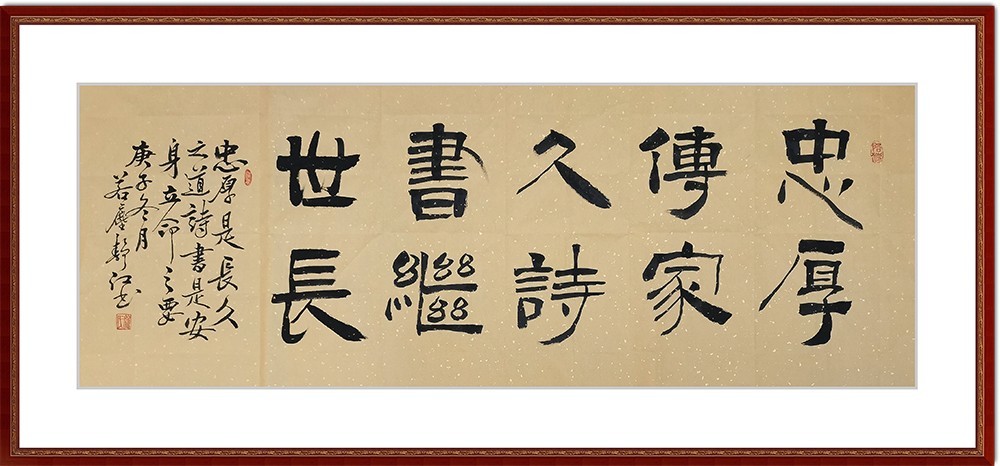 忠厚
傳家
久詩
書繼
世長
忠厚是長久
之道詩書是安
身立命之要
庚子冬月
若塵靜江書